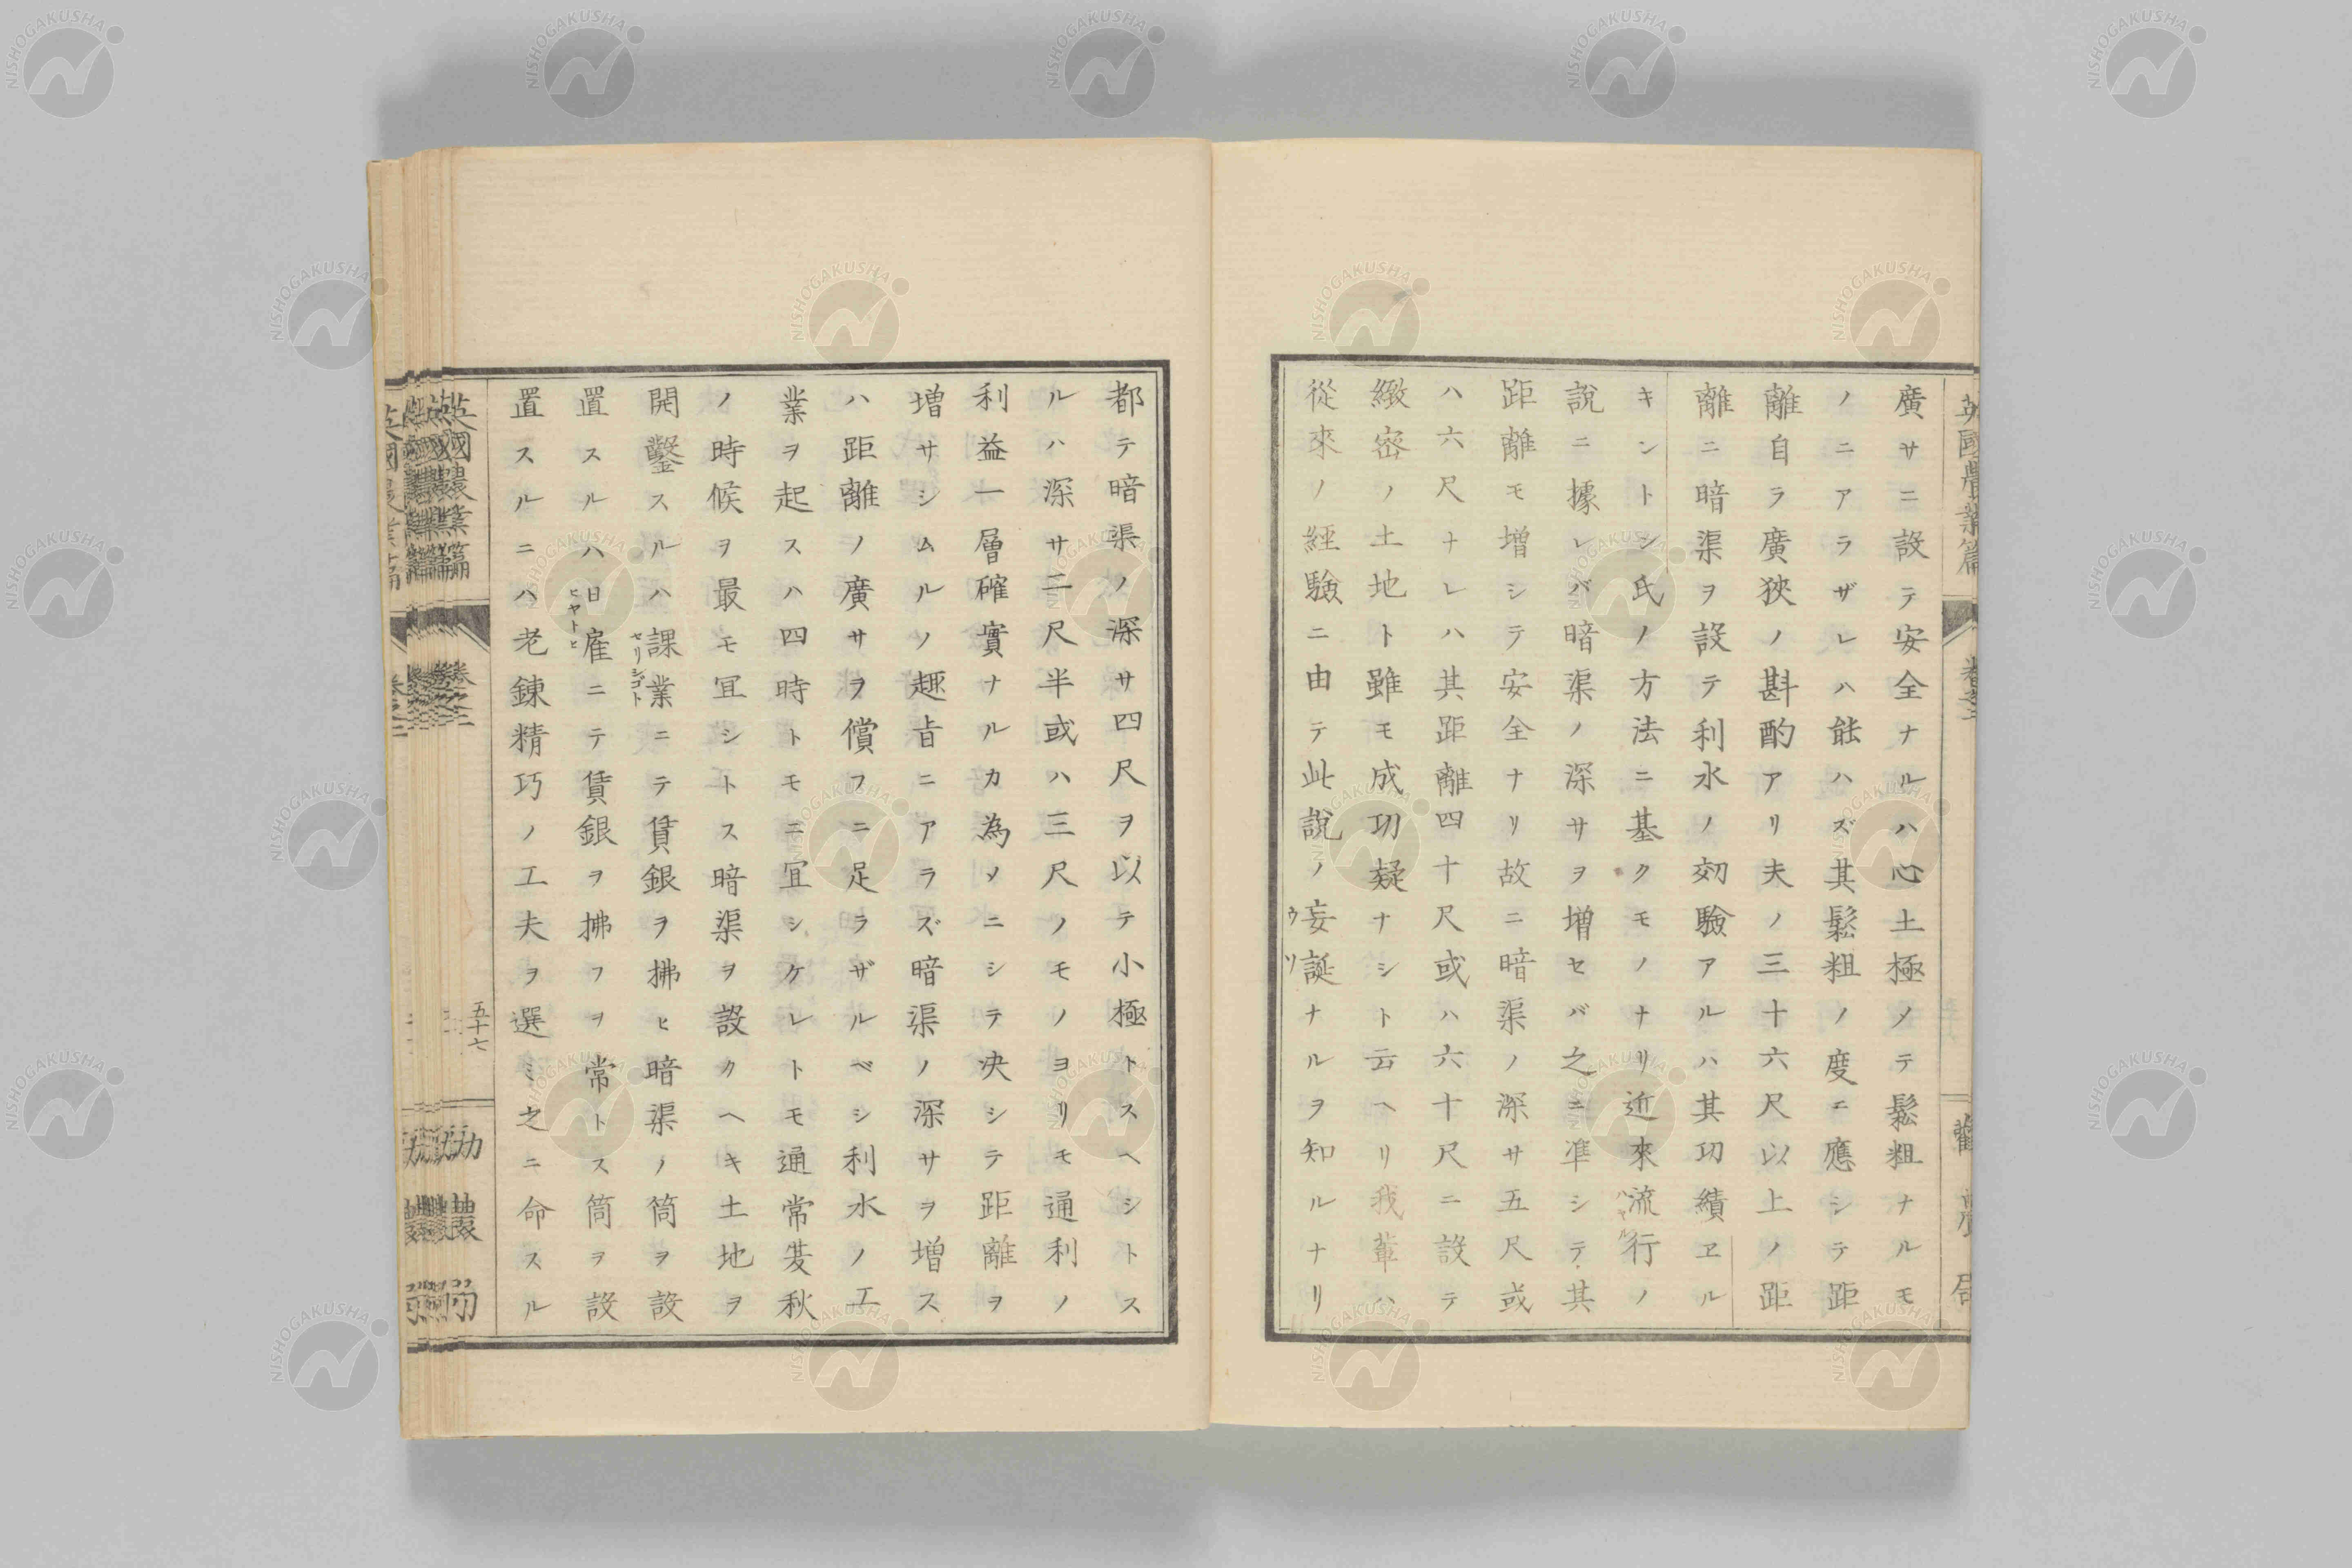 廣サニ設テ安全ナルハ心土極メテ鬆粗ナルモ
ノニアラザレハ能ハズ其鬆粗ノ度ニ應シテ距
離自ラ廣狹ノ斟酌アリ夫ノ三十六尺以上ノ距
離ニ暗渠ヲ設テ利水ノ効驗アルハ其功績ヱル
キントシ氏ノ方法ニ基クモノナリ近來流行ノ
説ニ據レバ暗渠ノ深サヲ増セバ之ニ準シテ其
距離モ増シテ安全ナリ故ニ暗渠ノ深サ五尺或
ハ六尺ナレハ其距離四十尺或ハ六十尺ニ設テ
緻密ノ土地ト雖モ成功疑ナシト云ヘリ我輩ハ
從來ノ經驗ニ由テ此説ノ妄誕ナルヲ知ルナリ
ウソ
英國農業篇 卷之二 勸農局
都テ暗渠ノ深サ四尺ヲ以テ小極トスヘシトス
ルハ深サ二尺半或ハ三尺ノモノヨリモ通利ノ
利益一層確實ナルカ為メニシテ决シテ距離ヲ
増サシムルノ趣旨ニアラズ暗渠ノ深サヲ増ス
ハ距離ノ廣サヲ償フニ足ラザルベシ利水ノ工
業ヲ起スハ四時トモニ宜シケレトモ通常夋秋
ノ時候ヲ最モ宜シトス暗渠ヲ設クヘキ土地ヲ
開鑿スルハ課業ニテ賃銀ヲ拂ヒ暗渠ノ筒ヲ設
セリシゴト
置スルハ日雇ニテ賃銀ヲ拂フヲ常トス筒ヲ設
ヒヤトヒ
置スルニハ老錬精巧ノ工夫ヲ選ミ之ニ命スル
英國農業篇 卷之二 五十七 勸農局